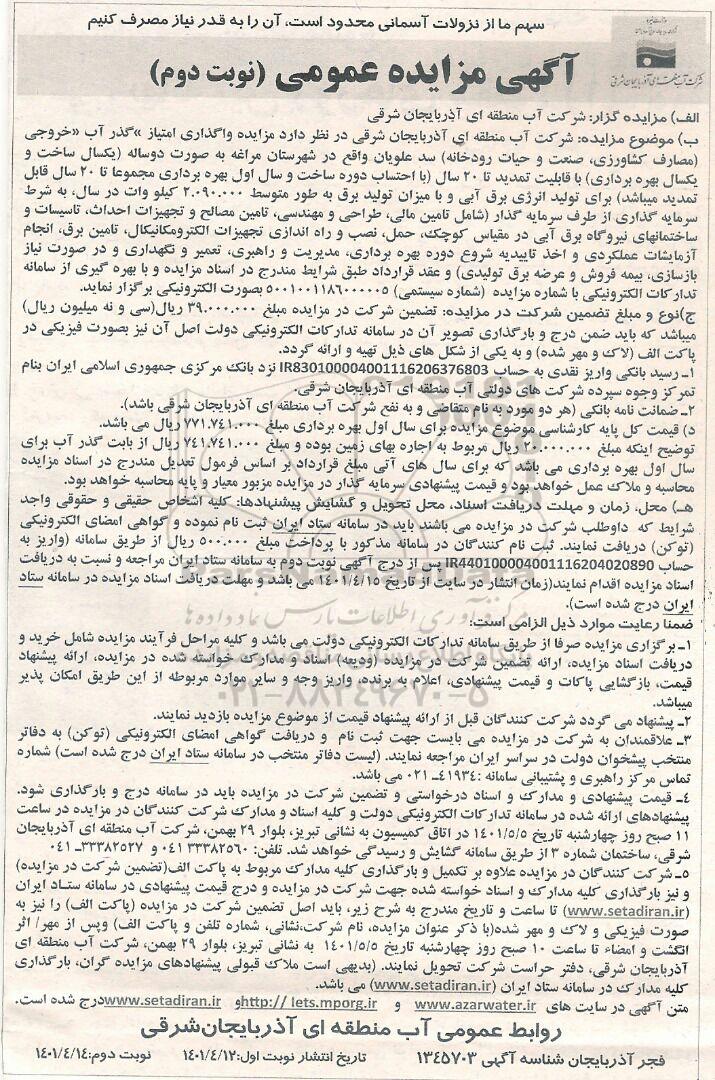 سهم ما از نزولات آسمانی محدود است، آن را به قدر نیاز مصرف کنیم
آگهی مزایده عمومی (نوبت دوم)
الف) مزایده گزار: شرکت آب منطقه ای آذربایجان شرقی
ب) موضوع مزایده: شرکت آب منطقه ای آذربایجان شرقی در نظر دارد مزایده واگذاری امتیاز »گذر آب «خروجی
(مصارف کشاورزی، صنعت و حیات رودخانه) سد علویان واقع در شهرستان مراغه به صورت دوساله (یکسال ساخت و
یکسال بهره برداری) با قابلیت تمدید تا ۲۰ سال (با احتساب دوره ساخت و سال اول بهره برداری مجموعا تا ۲۰ سال قابل
تمدید میباشد) برای تولید انرژی برق آبی و با میزان تولید برق به طور متوسط ۲.۰۹۰.۰۰۰ کیلو وات در سال، به شرط
سرمایه گذاری از طرف سرمایه گذار (شامل تامین مالی، طراحی و مهندسی، تامین مصالح و تجهیزات احداث، تاسیسات و
ساختمانهای نیروگاه برق آبی در مقیاس کوچک، حمل، نصب و راه اندازی تجهیزات الکترومکانیکال، تامین برق، انجام
آزمایشات عملکردی و اخذ تاییدیه شروع دوره بهره برداری، مدیریت و راهبری، تعمیر و نگهداری و در صورت نیاز
بازسازی، بیمه فروش و عرضه برق تولیدی) و عقد قرارداد طبق شرایط مندرج در اسناد مزایده و با بهره گیری از سامانه
تدارکات الکترونیکی با شماره مزایده (شماره سیستمی) ۵۰۰۱۰۰۱۱۸۶۰۰۰۰۰۵ بصورت الکترونیکی برگزار نماید.
ج)نوع و مبلغ تضمین شرکت در مزایده: تضمین شرکت در مزایده مبلغ ۳۹.۰۰۰.۰۰۰ ریال(سی و نه میلیون ریال)
میباشد که باید ضمن درج و بارگذاری تصویر آن در سامانه تدارکات الکترونیکی دولت اصل آن نیز بصورت فیزیکی در
پاکت الف (لاک و مهر شده) و به یکی از شکل های ذیل تهیه و ارائه گردد.
۱ـ رسید بانکی واریز نقدی به حساب IR830100004001116206376803 نزد بانک مرکزی جمهوری اسلامی ایران بنام
تمرکز وجوه سپرده شرکت های دولتی آب منطقه ای آذربایجان شرقی.
۲ـ ضمانت نامه بانکی (هر دو مورد به نام متقاضی و به نفع شرکت آب منطقه ای آذربایجان شرقی باشد).
د) قیمت کل پایه کارشناسی موضوع مزایده برای سال اول بهره برداری مبلغ ۷۷۱.۷۴۱.۰۰۰ ریال می باشد.
توضیح اینکه مبلغ ۳۰.۰۰۰.۰۰۰ ریال مربوط به اجاره بهای زمین بوده و مبلغ ۷۴۱.۷۴۱.۰۰۰ ریال از بابت گذر آب برای
سال اول بهره برداری می باشد که برای سال های آتی مبلغ قرارداد بر اساس فرمول تعدیل مندرج در اسناد مزایده
محاسبه و ملاک عمل خواهد بود و قیمت پیشنهادی سرمایه گذار در مزایده مزبور معیار و پایه محاسبه خواهد بود.
هـ) محل، زمان و مهلت دریافت اسناد، محل تحویل و گشایش پیشنهادها: کلیه اشخاص حقیقی و حقوقی واجد
شرایط که داوطلب شرکت در مزایده می باشند باید در سامانه ستاد ایران ثبت نام نموده و گواهی امضای الکترونیکی
(توکن) دریافت نمایند. ثبت نام کنندگان در سامانه مذکور با پرداخت مبلغ ۵۰۰.۰۰۰ ریال از طریق سامانه (واریز به
حساب IR440100004001116204020890 پس از درج آگهی نوبت دوم به سامانه ستاد ایران مراجعه و نسبت به دریافت
اسناد مزایده اقدام نمایند(زمان انتشار در سایت از تاریخ ۱۴۰۱/۴/۱۵ می باشد و مهلت دریافت اسناد مزایده در سامانه ستاد
ایران درج شده است).
ضمنا رعایت موارد ذیل الزامی است:
۱ـ برگزاری مزایده صرفا از طریق سامانه تدارکات الکترونیکی دولت می باشد و کلیه مراحل فرآیند مزایده شامل خرید و
دریافت اسناد مزایده، ارائه تضمین شرکت در مزایده (ودیعه) اسناد و مدارک خواسته شده در مزایده، ارائه پیشنهاد
قیمت، بازگشایی پاکات و قیمت پیشنهادی، اعلام به برنده، واریز وجه و سایر موارد مربوطه از این طریق امکان پذیر
میباشد.
۲ـ پیشنهاد می گردد شرکت کنندگان قبل از ارائه پیشنهاد قیمت از موضوع مزایده بازدید نمایند.
۳ـ علاقمندان به شرکت در مزایده می بایست جهت ثبت نام و دریافت گواهی امضای الکترونیکی (توکن) به دفاتر
منتخب پیشخوان دولت در سراسر ایران مراجعه نمایند. (لیست دفاتر منتخب در سامانه ستاد ایران درج شده است) شماره
تماس مرکز راهبری و پشتیبانی سامانه :۴۱۹۳۴ـ ۰۲۱ می باشد.
۴ـ قیمت پیشنهادی و مدارک و اسناد درخواستی و تضمین شرکت در مزایده باید در سامانه درج و بارگذاری شود.
پیشنهادهای ارائه شده در سامانه تدارکات الکترونیکی دولت و کلیه اسناد و مدارک شرکت کنندگان در مزایده در ساعت
۱۱ صبح روز چهارشنبه تاریخ ۱۴۰۱/۵/۵ در اتاق کمیسیون به نشانی تبریز، بلوار ۲۹ بهمن، شرکت آب منطقه ای آذربایجان
شرقی، ساختمان شماره ۳ از طریق سامانه گشایش و رسیدگی خواهد شد. تلفن: ۳۳۳۸۲۵۶۰ ۰۴۱ و ۳۳۳۸۲۵۲۷ـ ۰۴۱
۵ـ شرکت کنندگان در مزایده علاوه بر تکمیل و بارگذاری کلیه مدارک مربوط به پاکت الف(تضمین شرکت در مزایده)
و نیز بارگذاری کلیه مدارک و اسناد خواسته شده جهت شرکت در مزایده و درج قیمت پیشنهادی در سامانه ستاد ایران
(www.setadiran.ir) تا ساعت و تاریخ مندرج به شرح زیر، باید اصل تضمین شرکت در مزایده (پاکت الف) را نیز به
صورت فیزیکی و لاک و مهر شده(با ذکر عنوان مزایده، نام شرکت،نشانی، شماره تلفن و پاکت الف) وپس از مهر/ اثر
انگشت و امضاء تا ساعت ۱۰ صبح روز چهارشنبه تاریخ ۱۴۰۱/۵/۵ به نشانی تبریز، بلوار ۲۹ بهمن، شرکت آب منطقه ای
آذربایجان شرقی، دفتر حراست شرکت تحویل نمایند. (بدیهی است ملاک قبولی پیشنهادهای مزایده گران، بارگذاری
کلیه مدارک در سامانه ستاد ایران (www.setadiran.ir) می باشد.
متن آگهی در سایت های www.azarwater.ir و http:// iets.mporg.irو www.setadiran.irدرج شده است.
روابط عمومی آب منطقه ای آذربایجان‌شرقی
فجر آذربایجان شناسه آگهی ۱۳۴۵۷۰۳ تاریخ انتشار نوبت اول:۱۴۰۱/۴/۱۲ نوبت دوم:۱۴۰۱/۴/۱۴